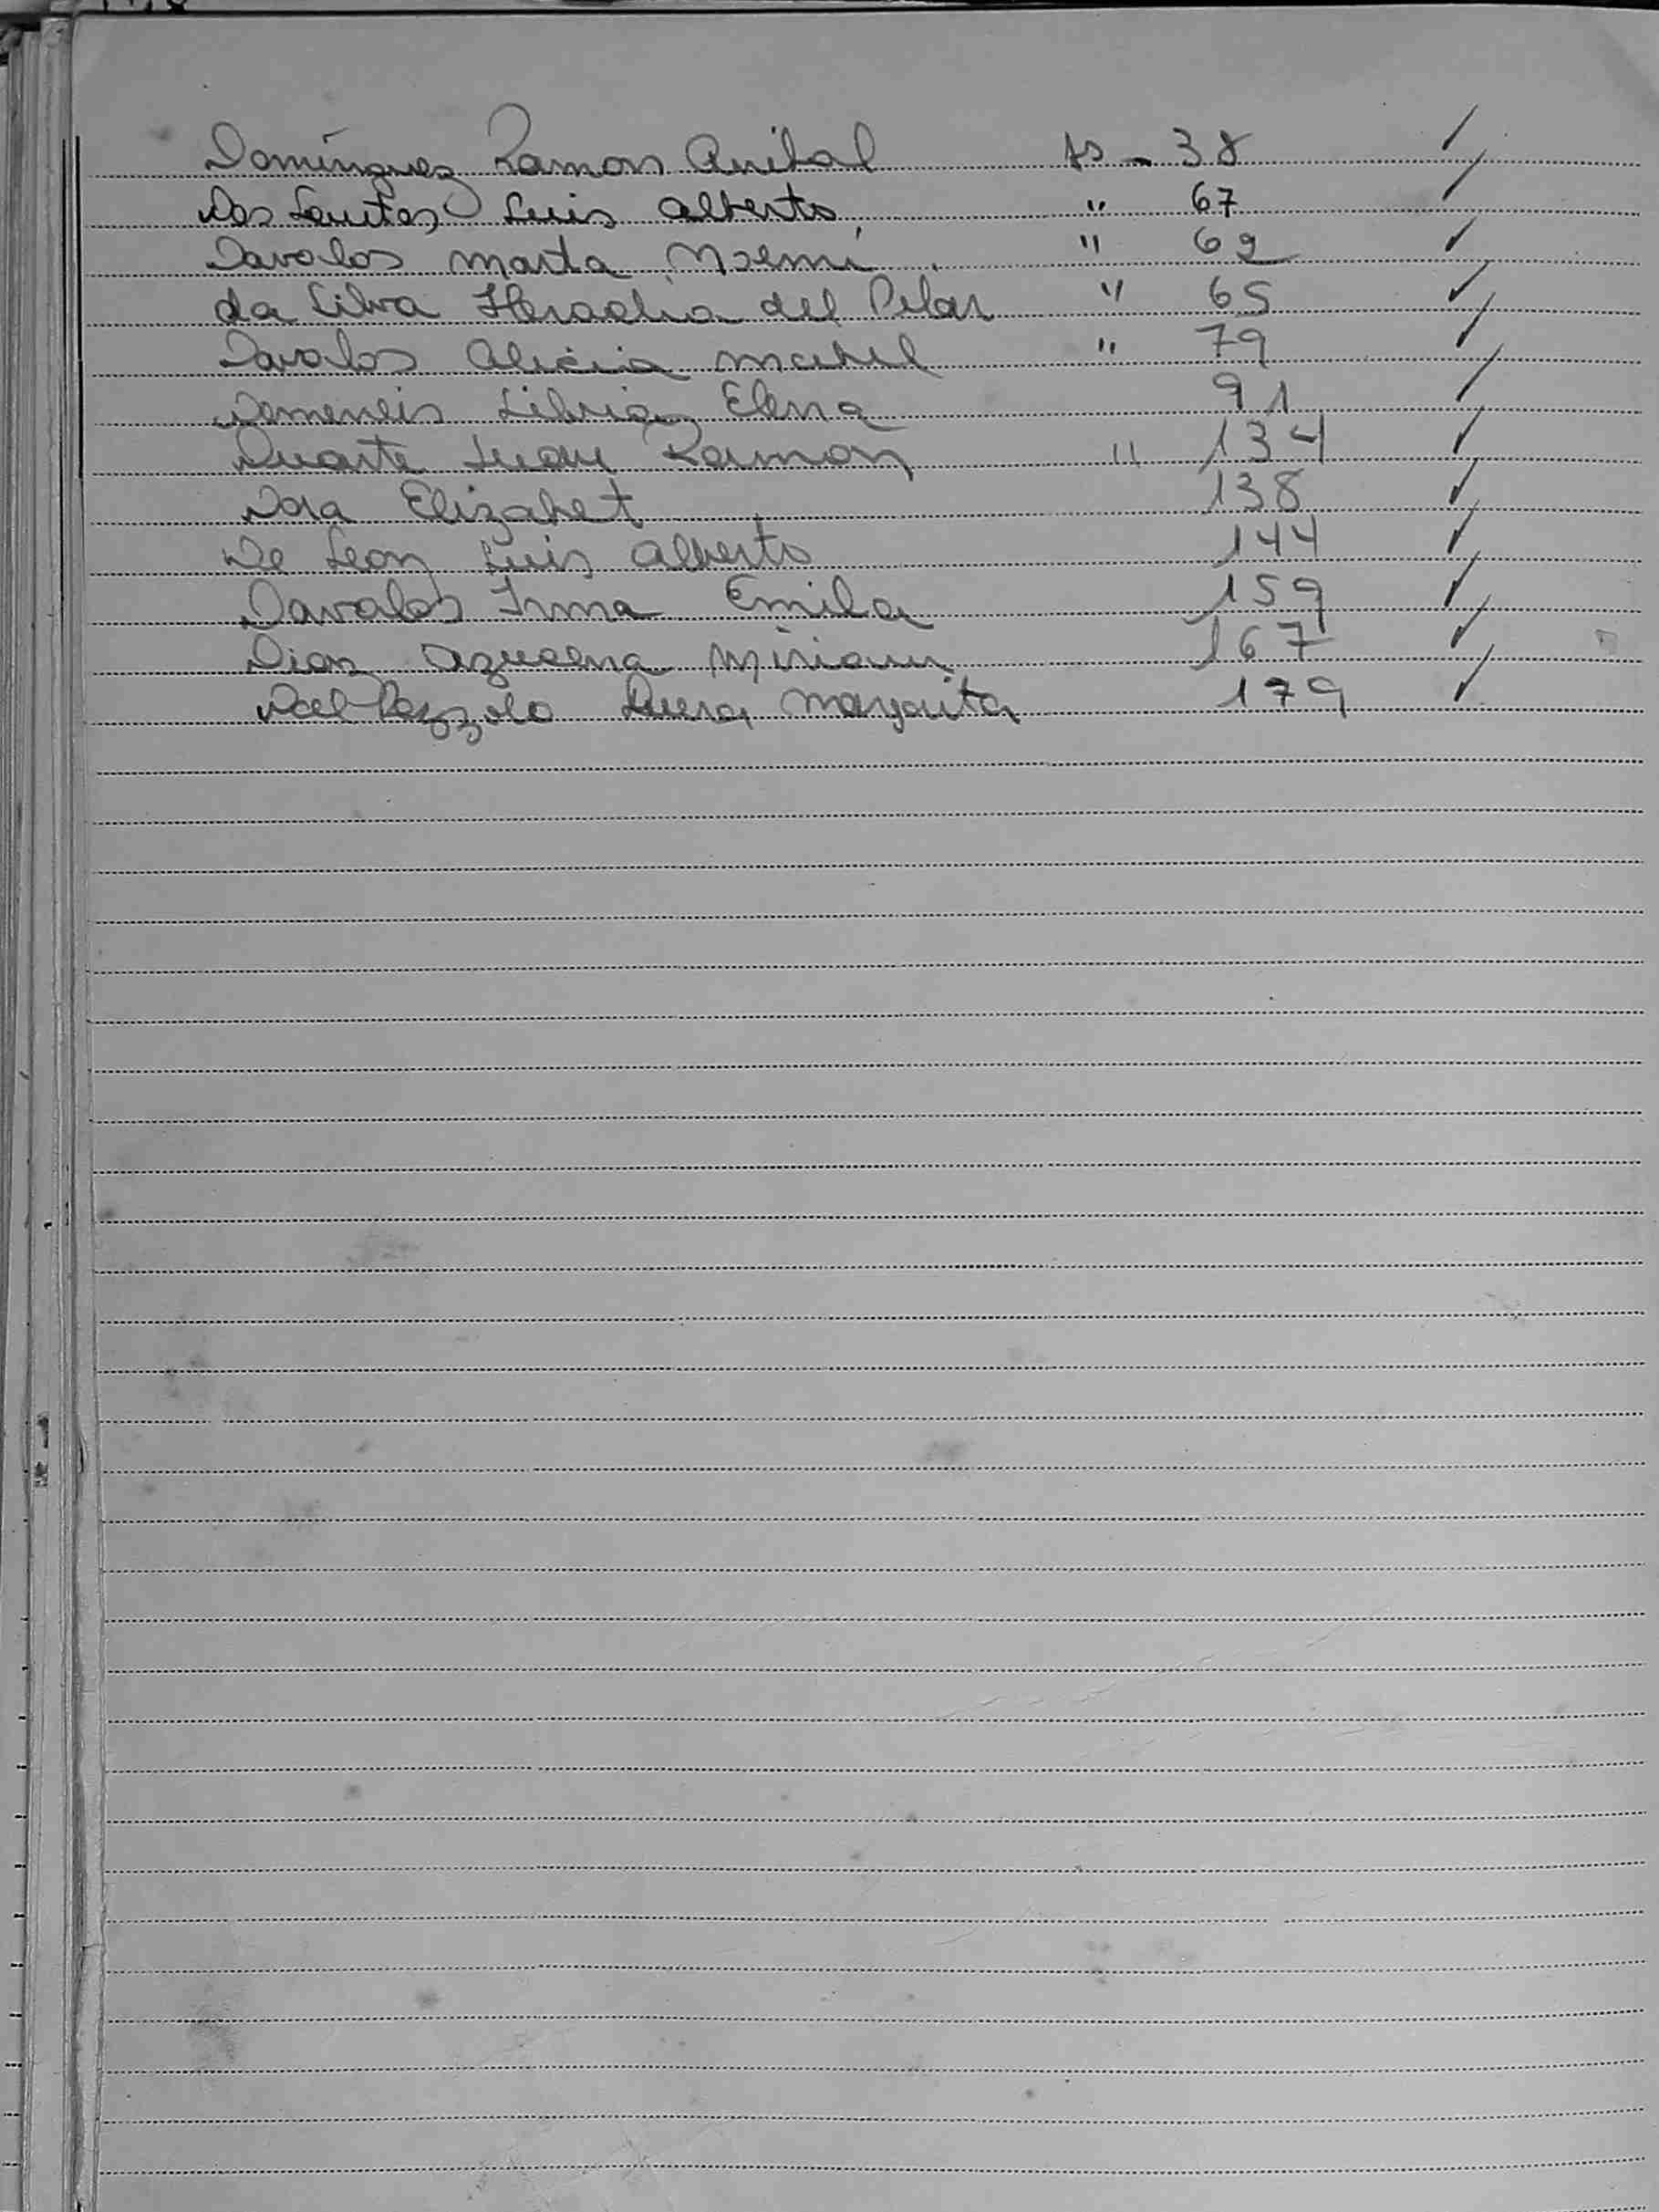 Domínguez Ramon Anibal fs - 38 ✓
Dos Santos, Luis alberto " 67 ✓
Davalos marta Noemí " 62 ✓
da Silva Heraclia del Pilar " 65 ✓
Davalos Alicia mabel " 79 ✓
Elena 91 ✓
Duarte Juan Ramon " 134 ✓
Dora Elizabet 138 ✓
De Leon Luis alberto 144 ✓
Davalos Irma Emila 159 ✓
Diaz azucena Miriam 167 ✓
Dal margarita 179 ✓